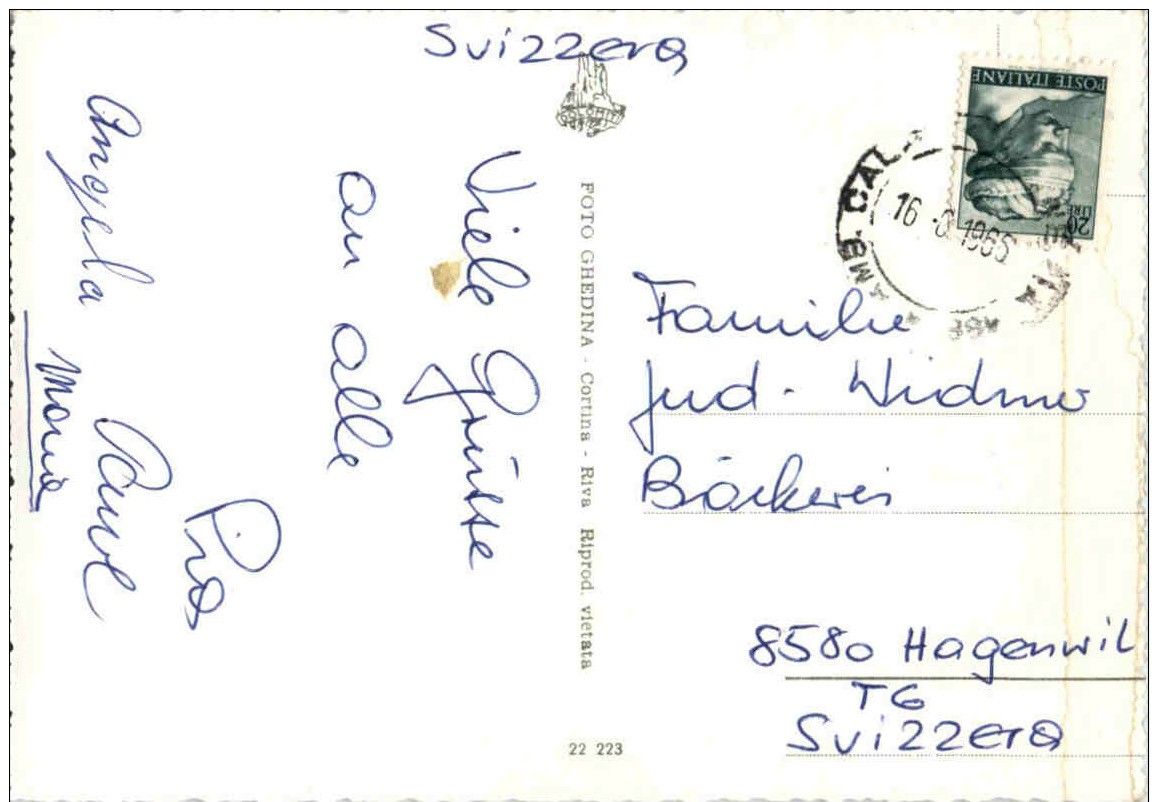 Svizzera
DOLOMITI
Viele Grüsse
an alle
Pino
Paul
Angela
Maria
FOTO GHEDINA - Cortina - Riva Riprod. vietata
22 223
POSTE ITALIANE
20
LIRE
AMB. CAL
16 1965
Familie
Jud - Widmer
Bäckerei
8580 Hagenwil
TG
Svizzera